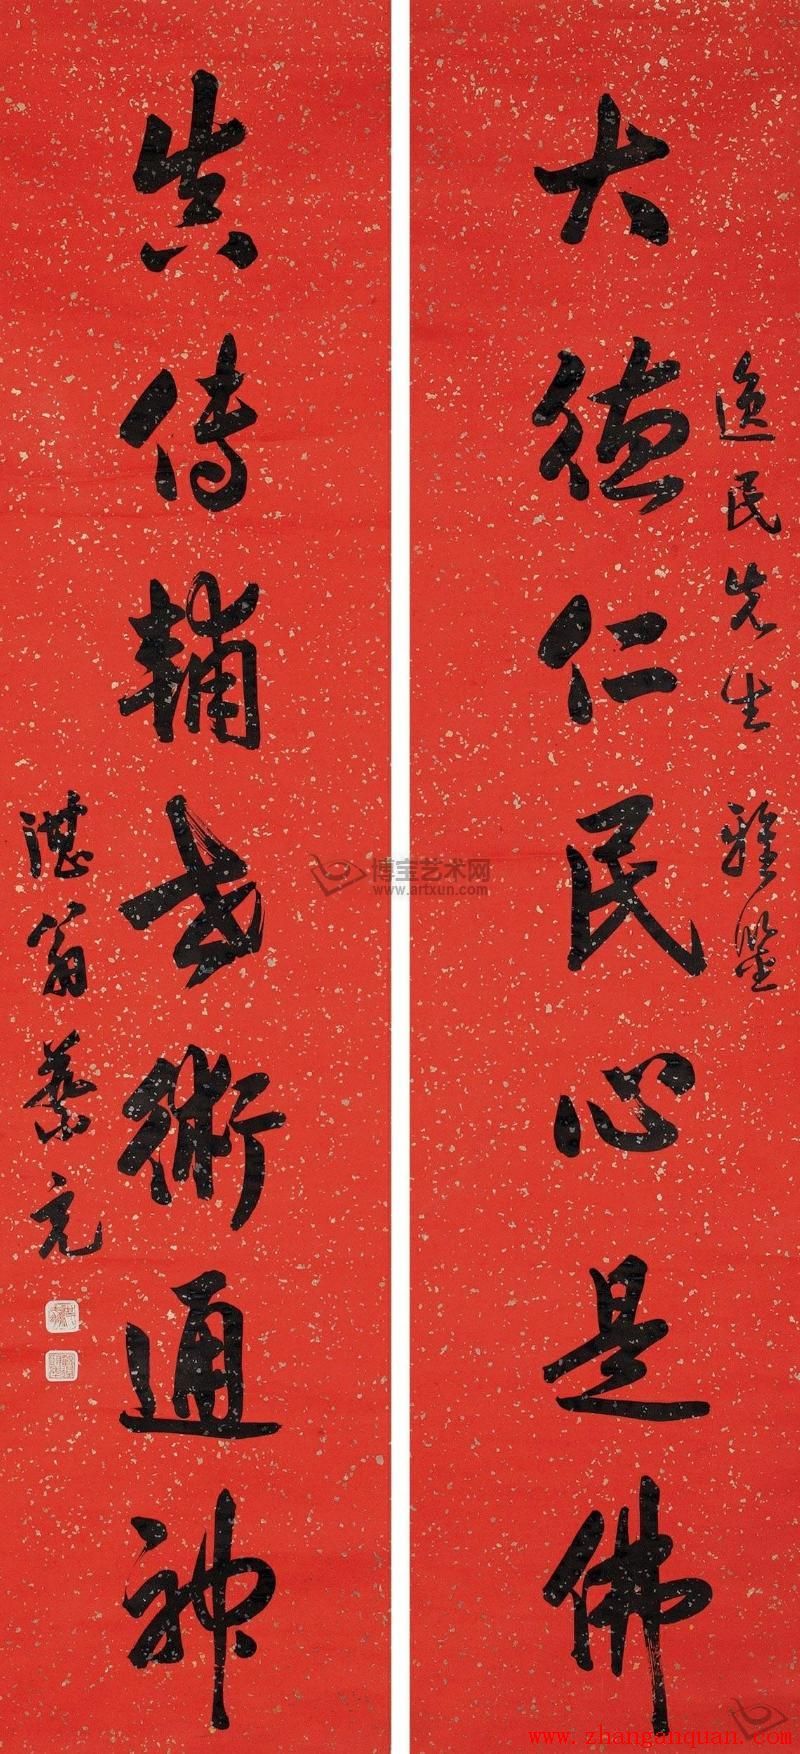 逸民先生 雅鑒
大德仁民心是佛
真傳輔世術通神
湛翁 元
博宝艺术网
www.artxun.com
www.zhanganquan.com